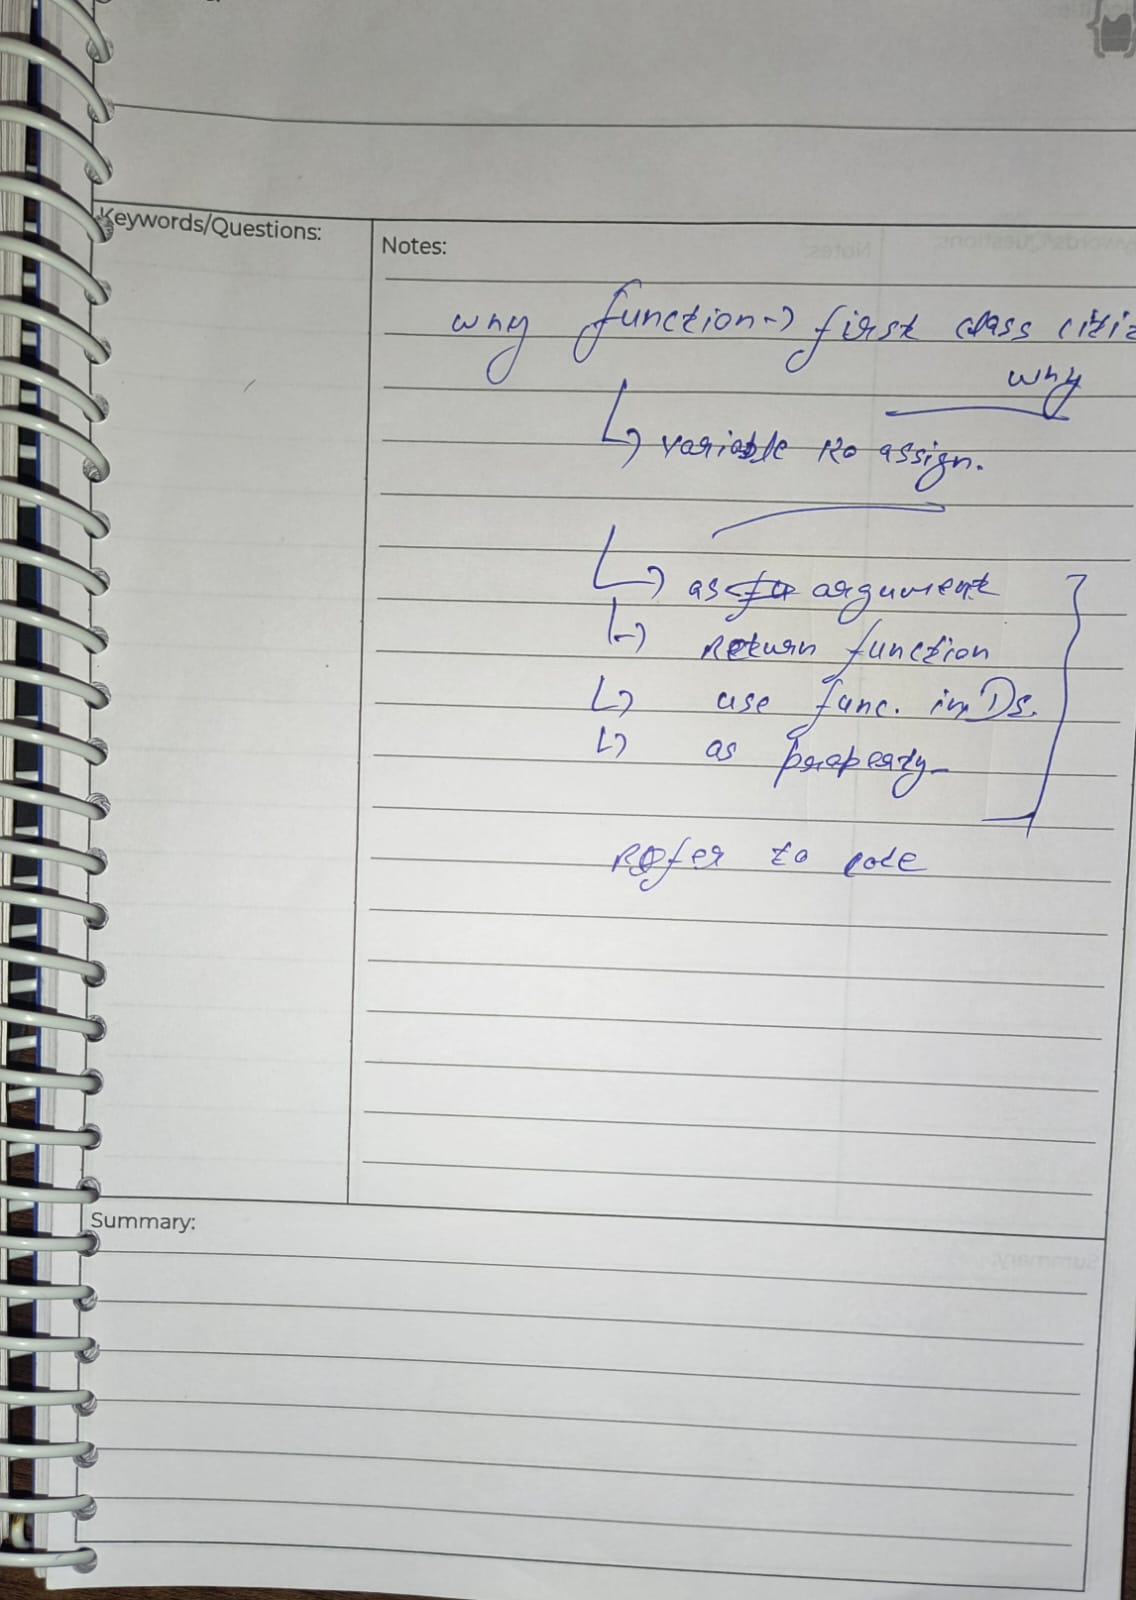 Keywords/Questions:
Notes:
why function → first class citiz
why
↳ variable ko assign.
↳ as argument
↳ Return function
↳ use func. in Ds.
↳ as property
Refer to code
Summary: